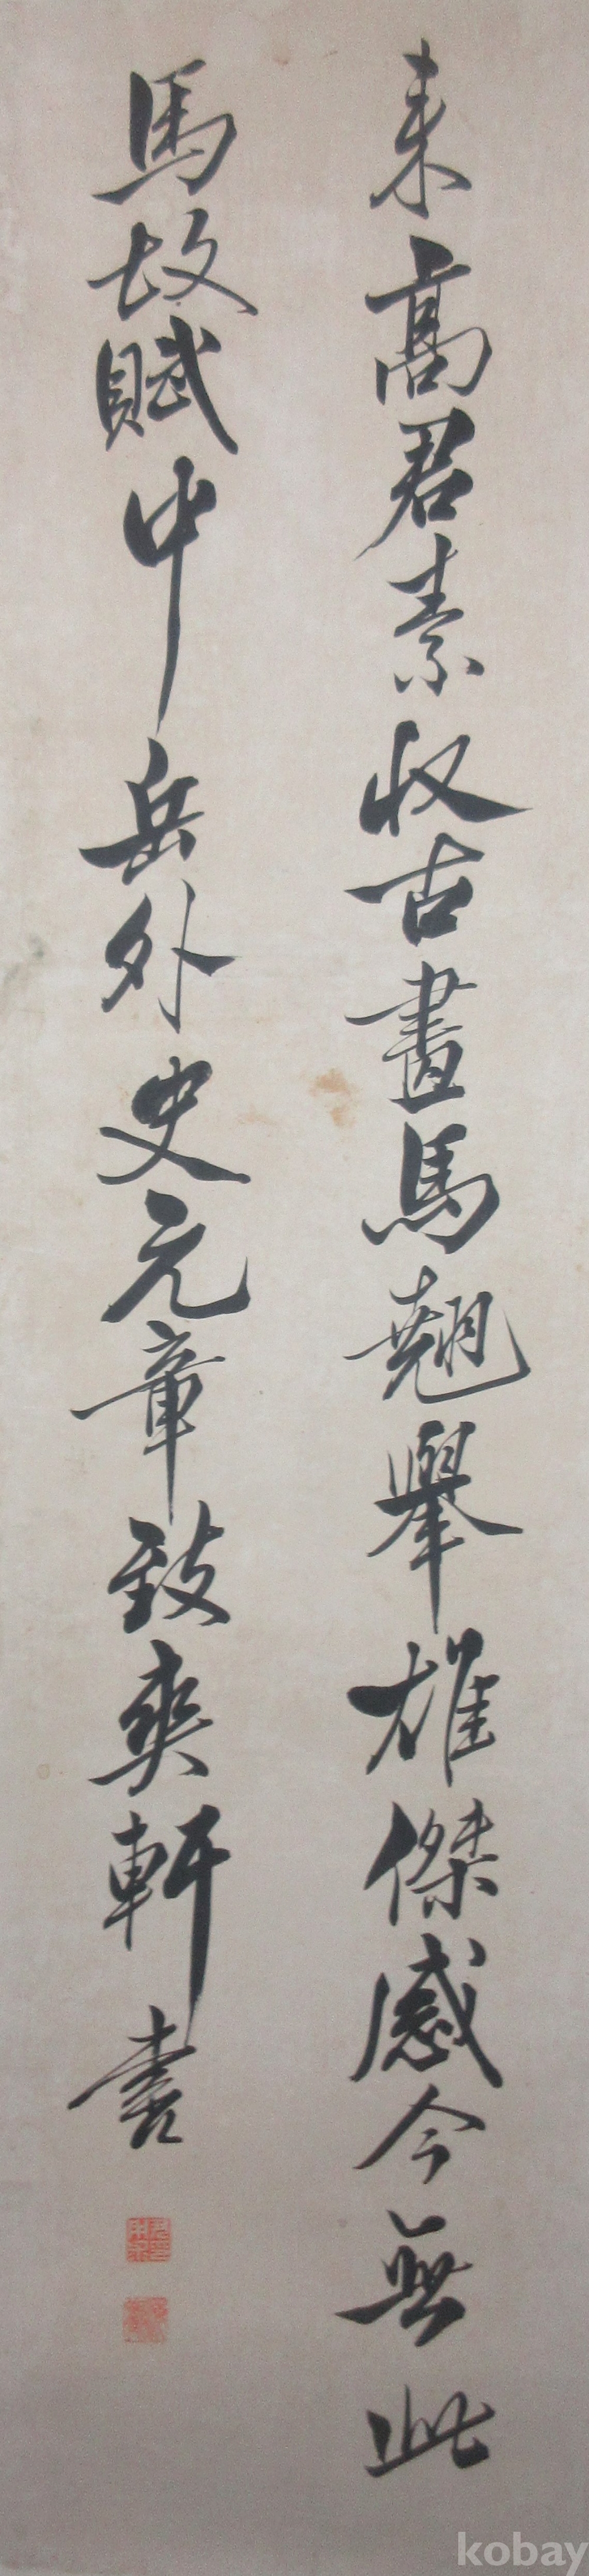 来高君素收古畫馬翹舉雄傑感今無此
馬故賦中岳外史元章致爽軒書
kobay